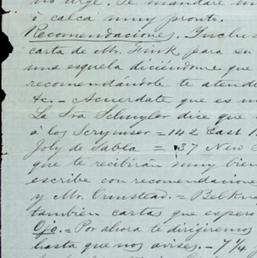 no urge. Te mandaré mi
ó calca muy pronto.
Recomendaciones. Inclus
carta de Mr. Funk para su
una esquela diciéndome que
recomendándole te atend
&c. — Acuerdate que es un
La Sra Schuyler dice que
á los Scrymser = 142 East 1
Joly de Sabla = 37 New
que te recibirán muy bien
escribe con recomendacione
y Mr. Ormstead = Belkn
también cartas que espero
Ojo. = Por ahora te dirigiremos
hasta que nos avises. — 7 1/4